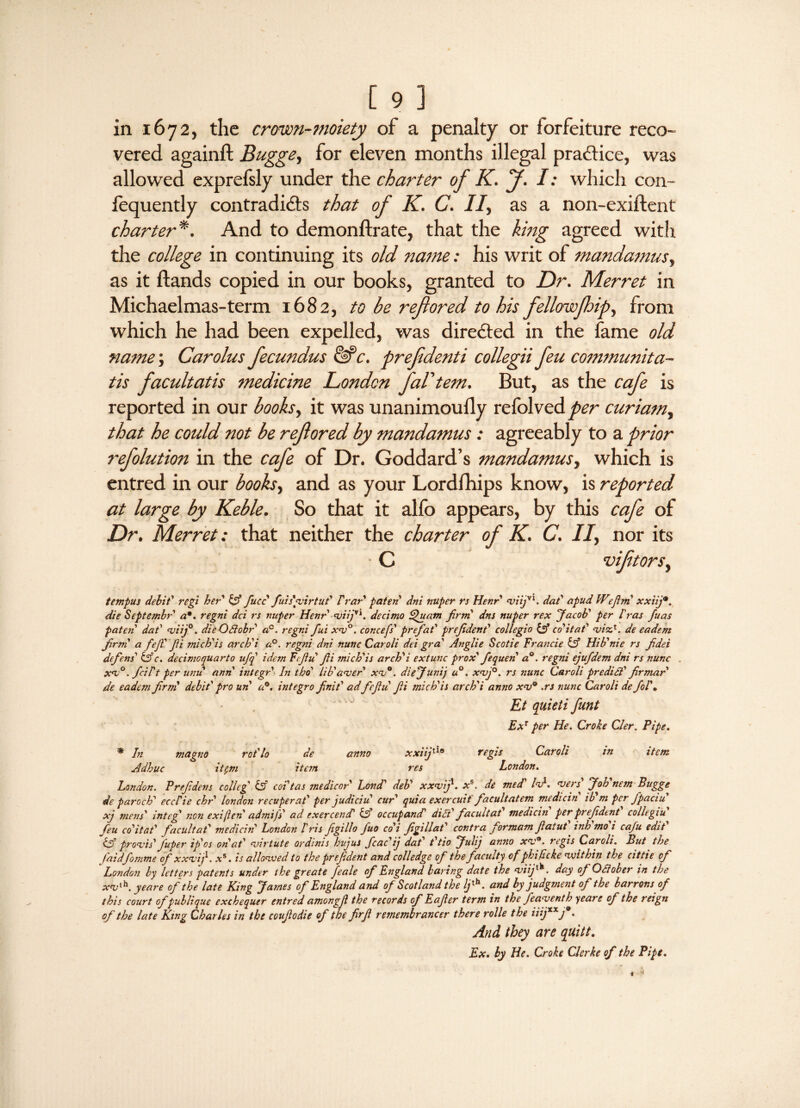 [ 9 ]
in 1672, the crown-moiety of a penalty or forfeiture reco-
vered againſt Bugge, for eleven months illegal practice, was
allowed expreſsly under the charter of K. J. I: which con-
ſequently contradicts that of K. C. II, as a non-exiſtent
charter*. And to demonſtrate, that the king agreed with
the college in continuing its old name: his writ of mandamus,
as it ſtands copied in our books, granted to Dr. Merret in
Michaelmas-term 1682, to be reſtored to his fellowſhip, from
which he had been expelled, was directed in the ſame old
name; Carolus ſecundus &c. preſidenti collegii ſeu communita-
tis facultatis medicine London ſal'tem. But, as the caſe is
reported in our books, it was unanimouſly reſolved per curiam,
that he could not be reſtored by mandamus: agreeably to a prior
reſolution in the caſe of Dr. Goddard's mandamus, which is
entred in our books, and as your Lordſhips know, is reported
at large by Keble. So that it alſo appears, by this caſe of
Dr. Merret: that neither the charter of K. C. II, nor its
C viſitors,
tempus debit' regi her' & ſucc' ſuis virtut' l'rar' paten' dni nuper rs Henr' viijvi. dat' apud Weſtm' xxiijo.
die Septembr' ao. regni dei rs nuper Henr' viijvi. decimo Quam firm' dns nuper rex Jacob' per l'ras ſuas
paten' dat' viijo. die Octobr' ao. regni ſui xvo. conceſſ' prefat' preſident' collegio & co'itat' vizt. de eadem
firm' a feſt' ſti mich'is arch'i ao. regni dni nunc Caroli dei gra' Anglie Scotie Francie & Hib'nie rs fidei
defens' &c. decimoquarto uſq' idem Feſtu' ſti mich'is arch'i extunc prox' ſequen' ao. regni ejuſdem dni rs nunc
xvo. ſcil't per unu' ann' integr' In tho' lib'aver' xvo. die Junij ao. xvjo. rs nunc Caroli predict' firmar'
de eadem firm' debit' pro un' ao. integro finit' ad feſtu' ſti mich'is arch'i anno xvo .rs nunc Caroli de ſol'.
Et quieti ſunt
Exr per He. Croke Cler. Pipe.
* In magno rot'lo de anno xxiijtio regis Caroli in item
Adhuc item item res London.
London. Preſidens colleg' & coi'tas medicor' Lond' deb' xxvijl. xs. de med' lvl. vers' Joh'nem Bugge
de paroch' eccl'ie chr' london recuperat' per judiciu' cur' quia exercuit facultatem medicin' ib'm per ſpaciu'
xj mens' integ' non exiſten' admiſſ' ad exercend' & occupand' dict' facultat' medicin' per preſident' collegiu'
ſeu co'itat' facultat' medicin' London l'ris ſigillo ſuo co'i ſigillat' contra formam ſtatut' inb'mo'i caſu edit'
& provis' ſuper ip'os on'at' virtute ordinis hujus ſcac'ij dat' t'tio Julij anno xvo. regis Caroli. But the
ſaid ſomme of xxvijl. xs. is allowed to the preſident and colledge of the faculty of phiſicke within the cittie of
London by letters patents under the greate ſeale of England baring date the viijth. day of October in the
xvth. yeare of the late King James of England and of Scotland the ljth. and by judgment of the barrons of
this court of publique exchequer entred amongſt the records of Eaſter term in the ſeaventh yeare of the reign
of the late King Charles in the couſtodie of the firſt remembrancer there rolle the iiijxxjo.
And they are quitt.
Ex. by He. Croke Clerke of the Pipe.